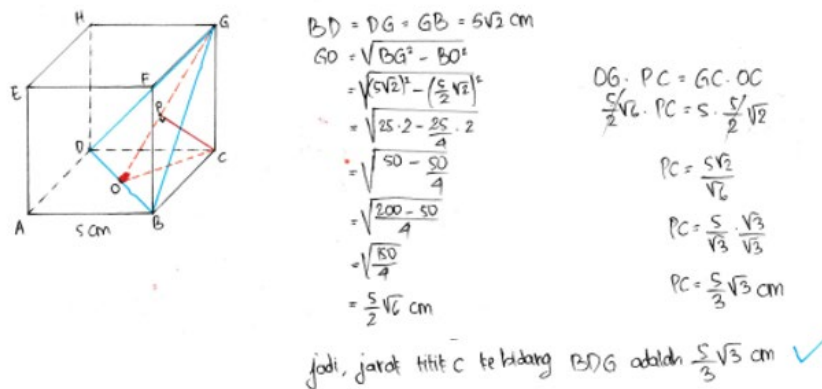 H
G
E
F
P
D
C
O
A
B
5 cm
BD = DG = GB = 5√2 cm
GO = √(BG² - BO²)
= √((5√2)² - (5/2 √2)²)
= √(25·2 - 25/4 · 2)
= √(50 - 50/4)
= √((200 - 50)/4)
= √(150/4)
= 5/2 √6 cm
OG . PC = GC . OC
5/2 √6 . PC = 5 . 5/2 √2
PC = 5√2/√6
PC = 5/√3 . √3/√3
PC = 5/3 √3 cm
jadi, jarak titik C ke bidang BDG adalah 5/3 √3 cm ✓